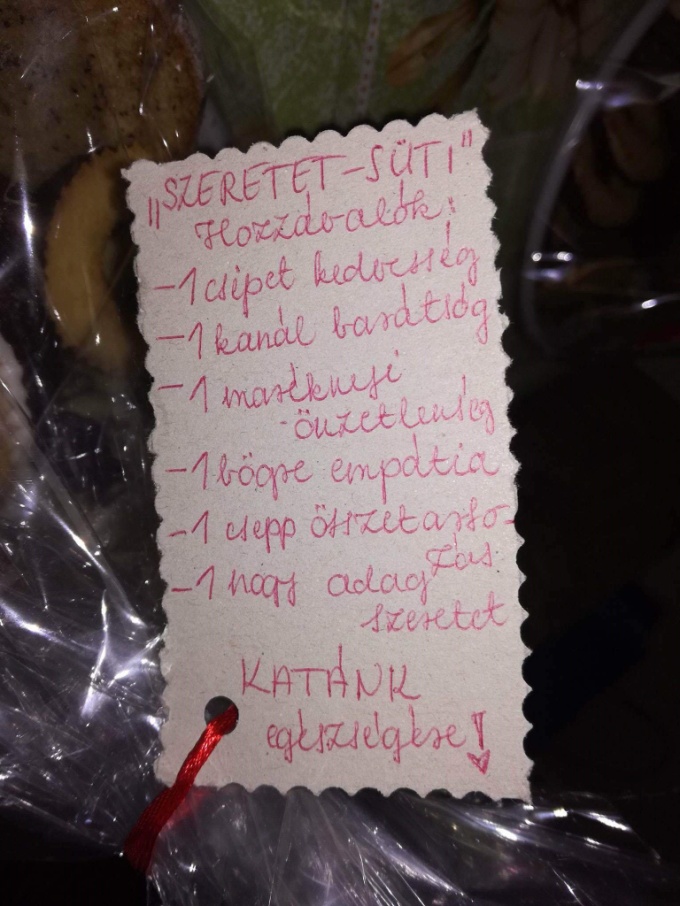 „SZERETET-SÜTI"
Hozzávalók:
-1 csipet kedvesség
-1 kanál barátság
-1 maréknyi
önzetlenség
-1 bögre empátia
-1 csepp összetarto-
zás
-1 nagy adag
szeretet
KATÁNK
egészségére!